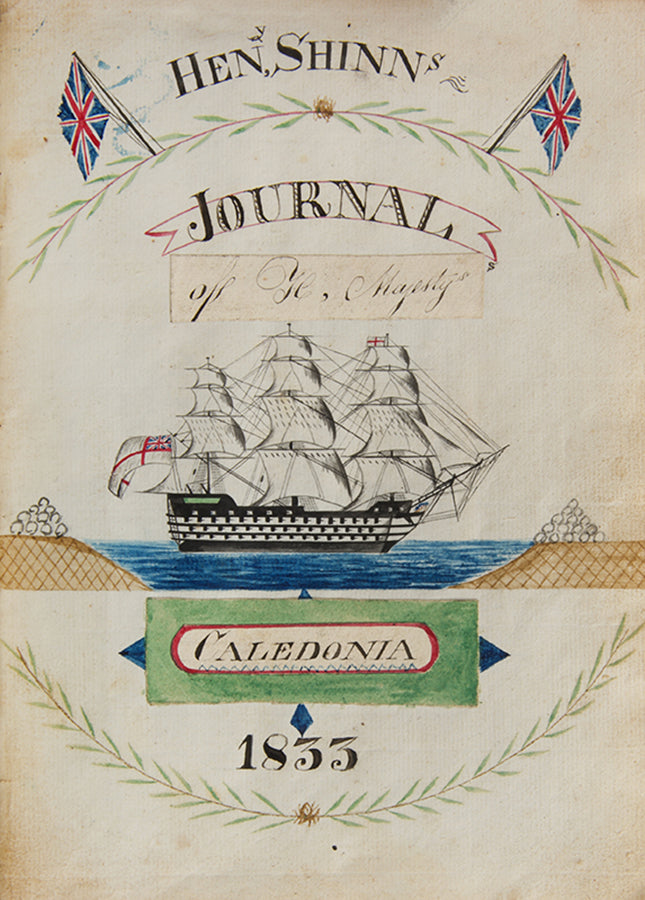 HENy, SHINNs
JOURNAL
off H, Majestys
CALEDONIA
1833